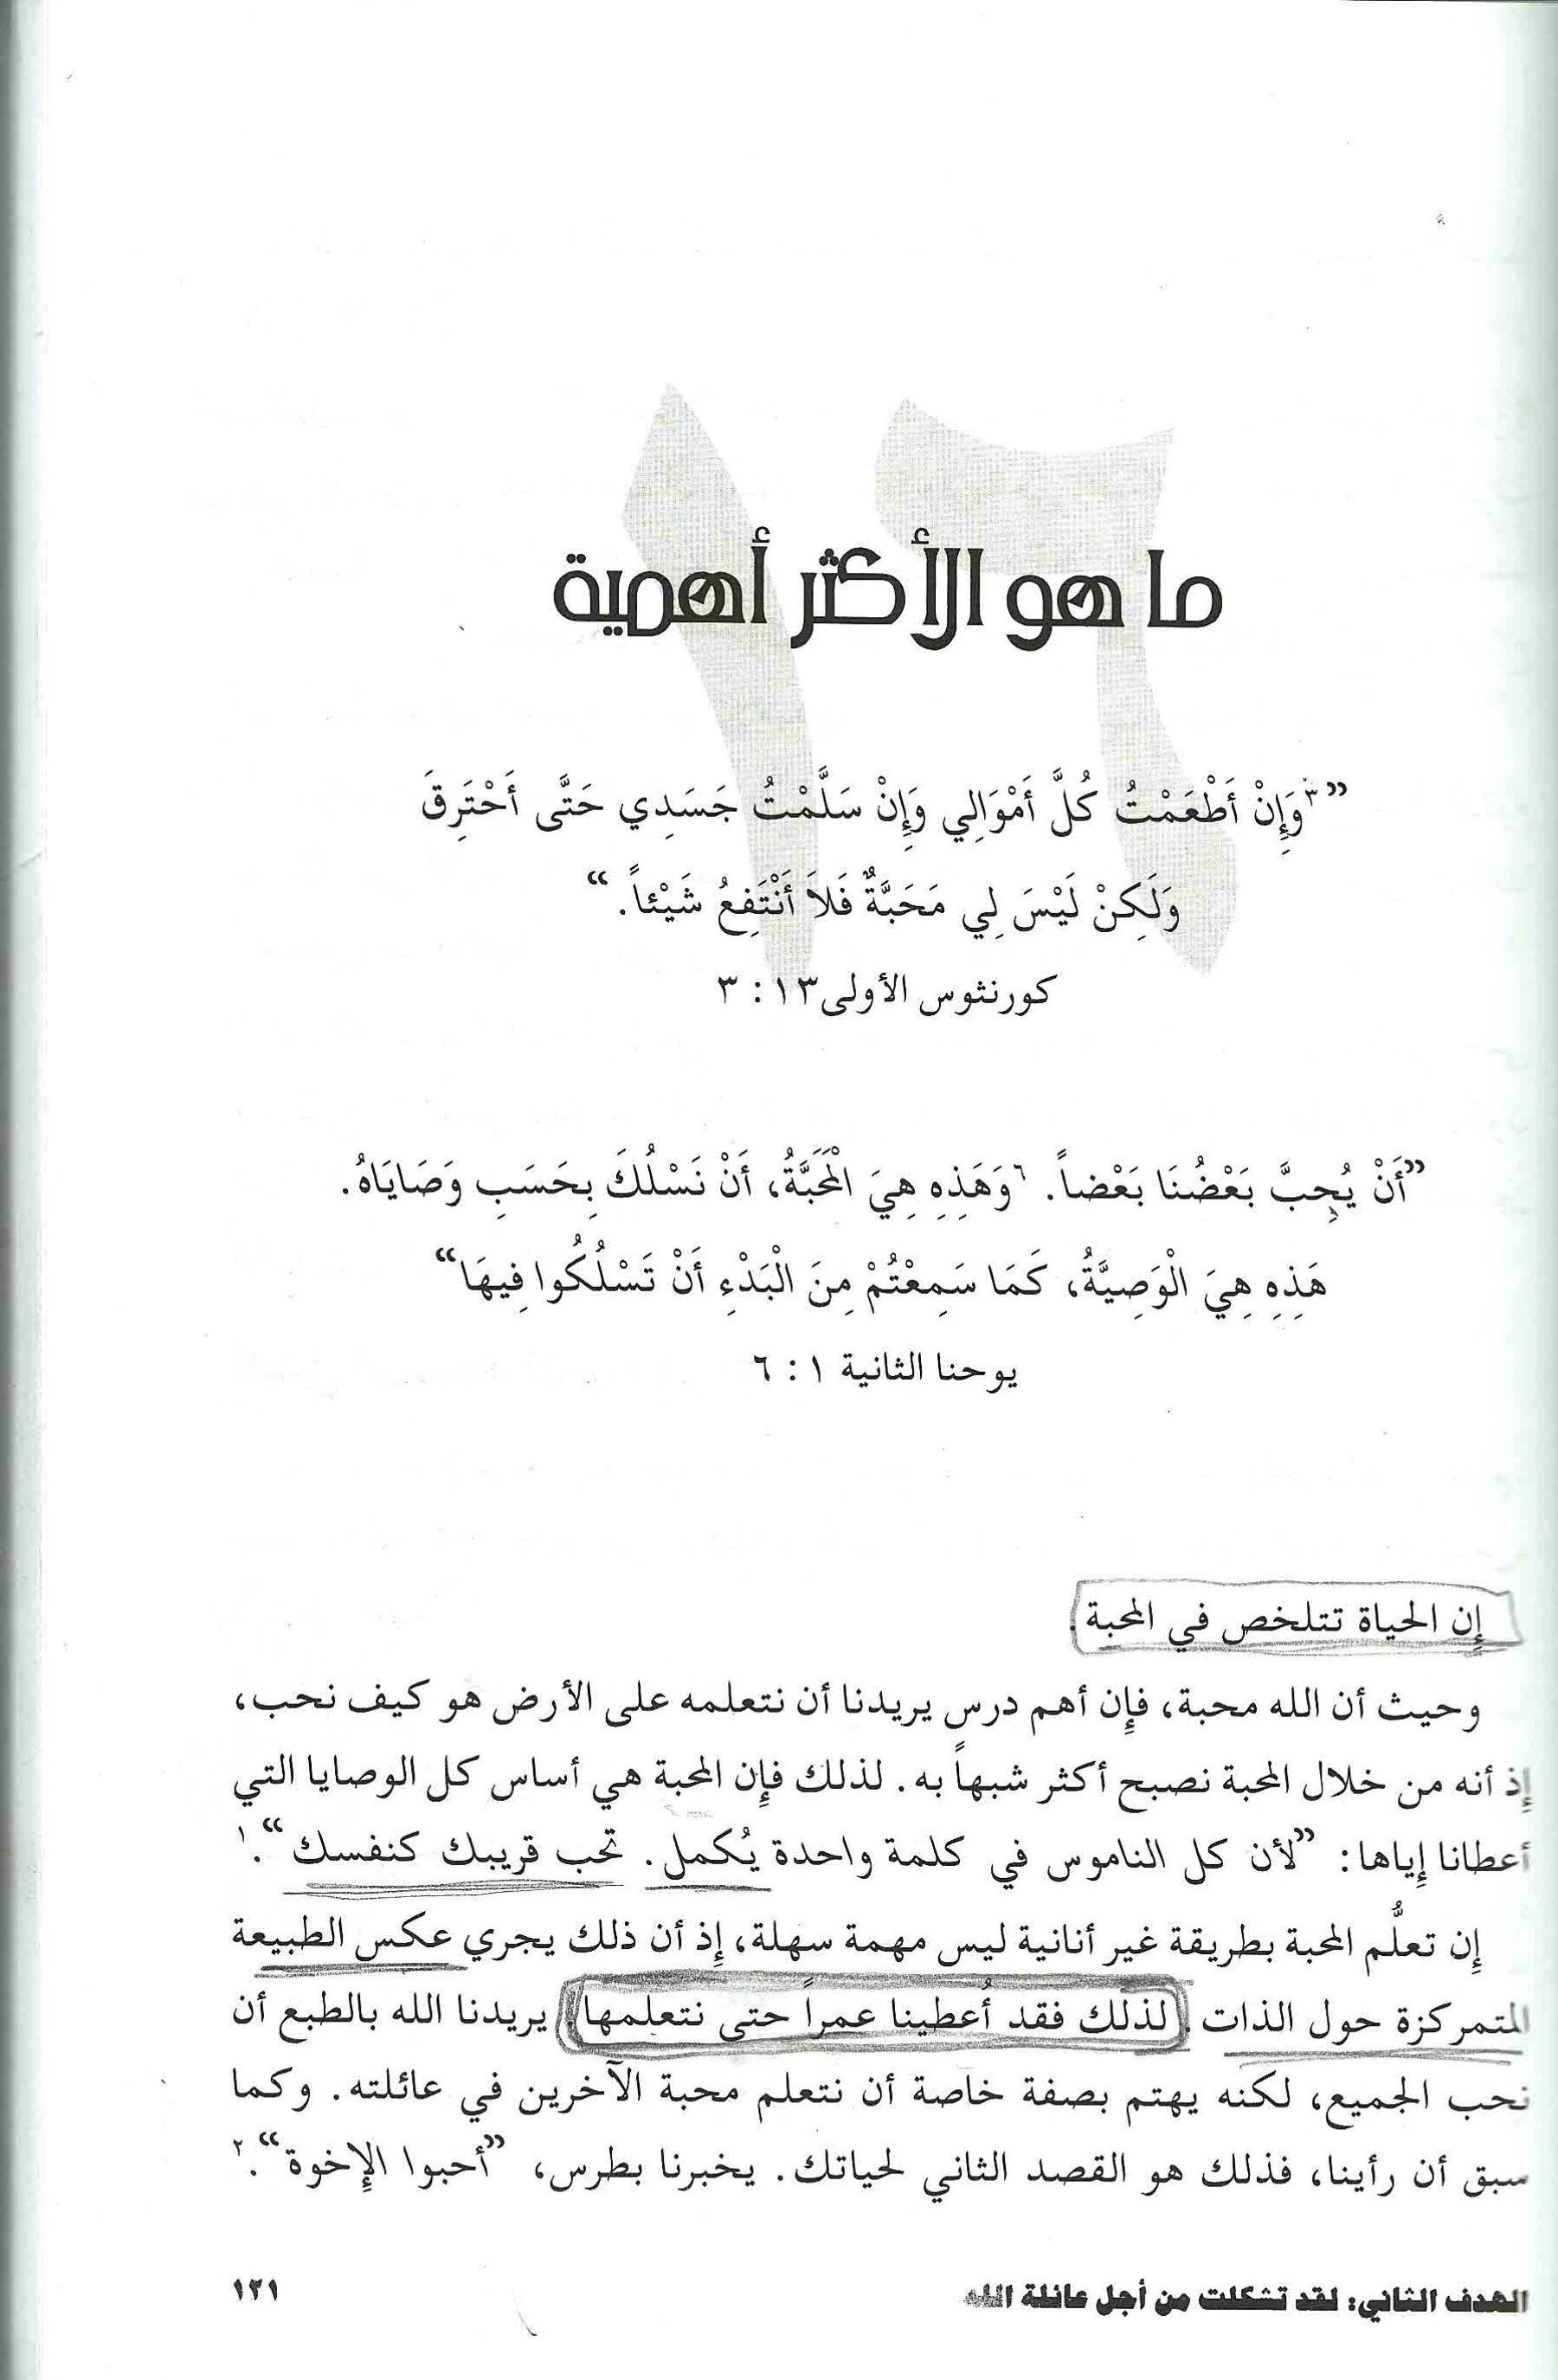 ١٦
ما هو الأكثر أهمية
”٣وَإِنْ أَطْعَمْتُ كُلَّ أَمْوَالِي وَإِنْ سَلَّمْتُ جَسَدِي حَتَّى أَحْتَرِقَ
وَلَكِنْ لَيْسَ لِي مَحَبَّةٌ فَلاَ أَنْتَفِعُ شَيْئاً.“
كورنثوس الأولى١٣: ٣
”أَنْ يُحِبَّ بَعْضُنَا بَعْضاً. ٦وَهَذِهِ هِيَ الْمَحَبَّةُ، أَنْ نَسْلُكَ بِحَسَبِ وَصَايَاهُ.
هَذِهِ هِيَ الْوَصِيَّةُ، كَمَا سَمِعْتُمْ مِنَ الْبَدْءِ أَنْ تَسْلُكُوا فِيهَا“
يوحنا الثانية ١: ٦
إن الحياة تتلخص في المحبة.
وحيث أن الله محبة، فإن أهم درس يريدنا أن نتعلمه على الأرض هو كيف نحب،
إذ أنه من خلال المحبة نصبح أكثر شبهاً به. لذلك فإن المحبة هي أساس كل الوصايا التي
أعطانا إياها: ”لأن كل الناموس في كلمة واحدة يُكمل. تحب قريبك كنفسك“.١
إن تعلُّم المحبة بطريقة غير أنانية ليس مهمة سهلة، إذ أن ذلك يجري عكس الطبيعة
المتمركزة حول الذات. لذلك فقد أُعطينا عمراً حتى نتعلمها. يريدنا الله بالطبع أن
نحب الجميع، لكنه يهتم بصفة خاصة أن نتعلم محبة الآخرين في عائلته. وكما
سبق أن رأينا، فذلك هو القصد الثاني لحياتك. يخبرنا بطرس، ”أحبوا الإخوة“.٢
الهدف الثاني: لقد تشكلت من أجل عائلة الله
١٢١